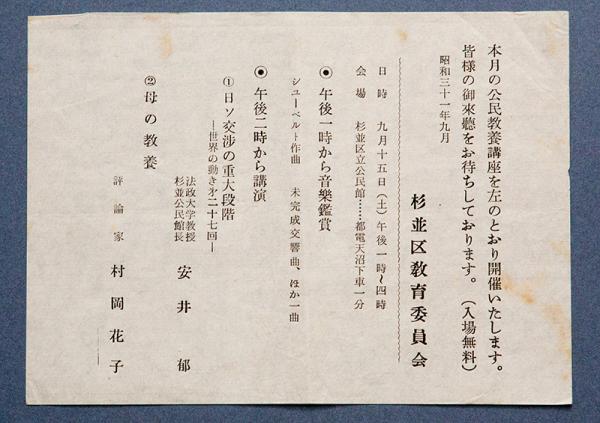 本月の公民教養講座を左のとおり開催いたします。
皆様の御來聽をお待ちしております。（入場無料）
昭和三十一年九月
杉並区教育委員会
日時　九月十五日（土）午後一時〜四時
会場　杉並区立公民館……都電天沼下車一分
◉ 午後一時から音樂鑑賞
シューベルト作曲　未完成交響曲、ほか一曲
◉ 午後二時から講演
① 日ソ交渉の重大段階
―世界の動き㐧二十七回―
法政大学教授
杉並公民館長
安井郁
② 母の教養
評論家　村岡花子